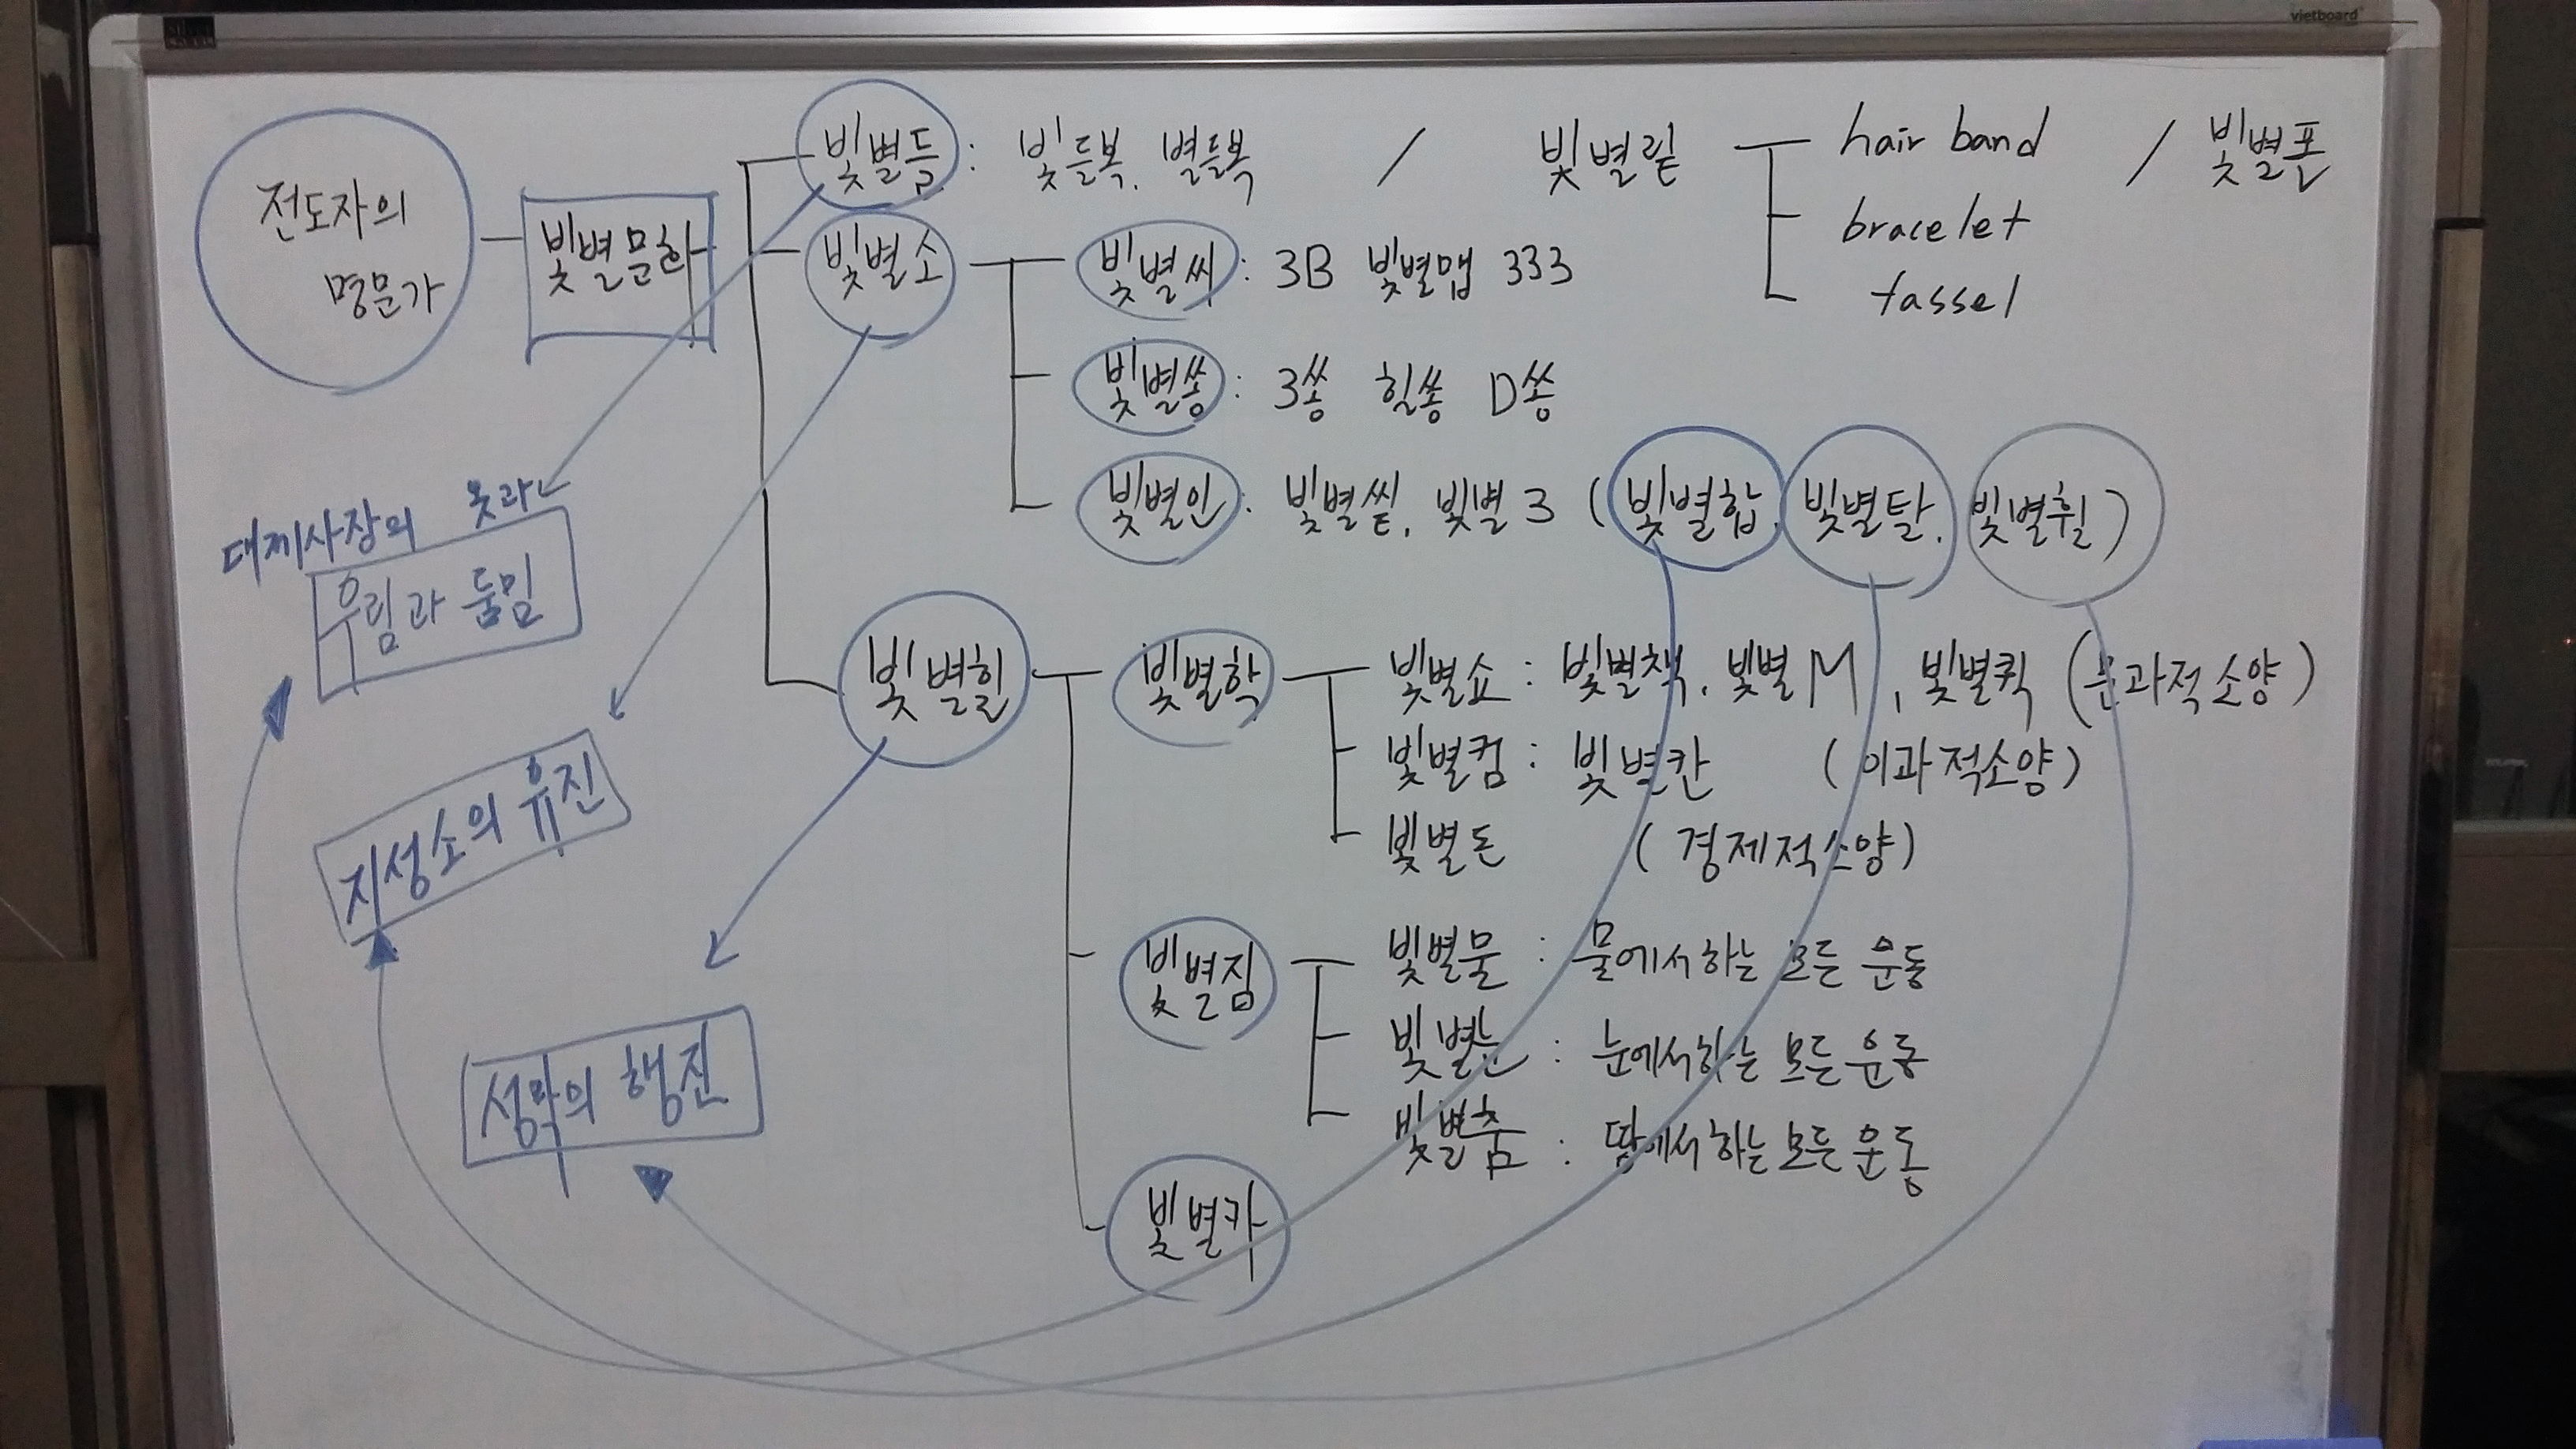 vietboard
전도자의
명문가
빛별문화
빛별듬 : 빛듬복. 별듬복 / 빛별릳 hair band / 빛별폰
bracelet
tassel
빛별소
빛별씨 : 3B 빛별맵 333
빛별쏭 : 3쏭 힐쏭 D쏭
빛별인 : 빛별씥. 빛별3 (빛별합. 빛별탈. 빛별휠)
대제사장의 옷과
우림과 둠밈
지성소의 유진
성막의 행진
빛별힐
빛별학
빛별쇼 : 빛별책. 빛별M, 빛별퀵 (문과적소양)
빛별컴 : 빛별칸 (이과적소양)
빛별돈 (경제적소양)
빛별짐
빛별물 : 물에서하는 모든 운동
빛별눈 : 눈에서하는 모든 운동
빛별춤 : 땅에서하는 모든 운동
빛별카